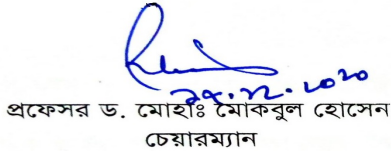 ২৯.১২.২০২০
প্রফেসর ড. মোহাঃ মোকবুল হোসেন
চেয়ারম্যান